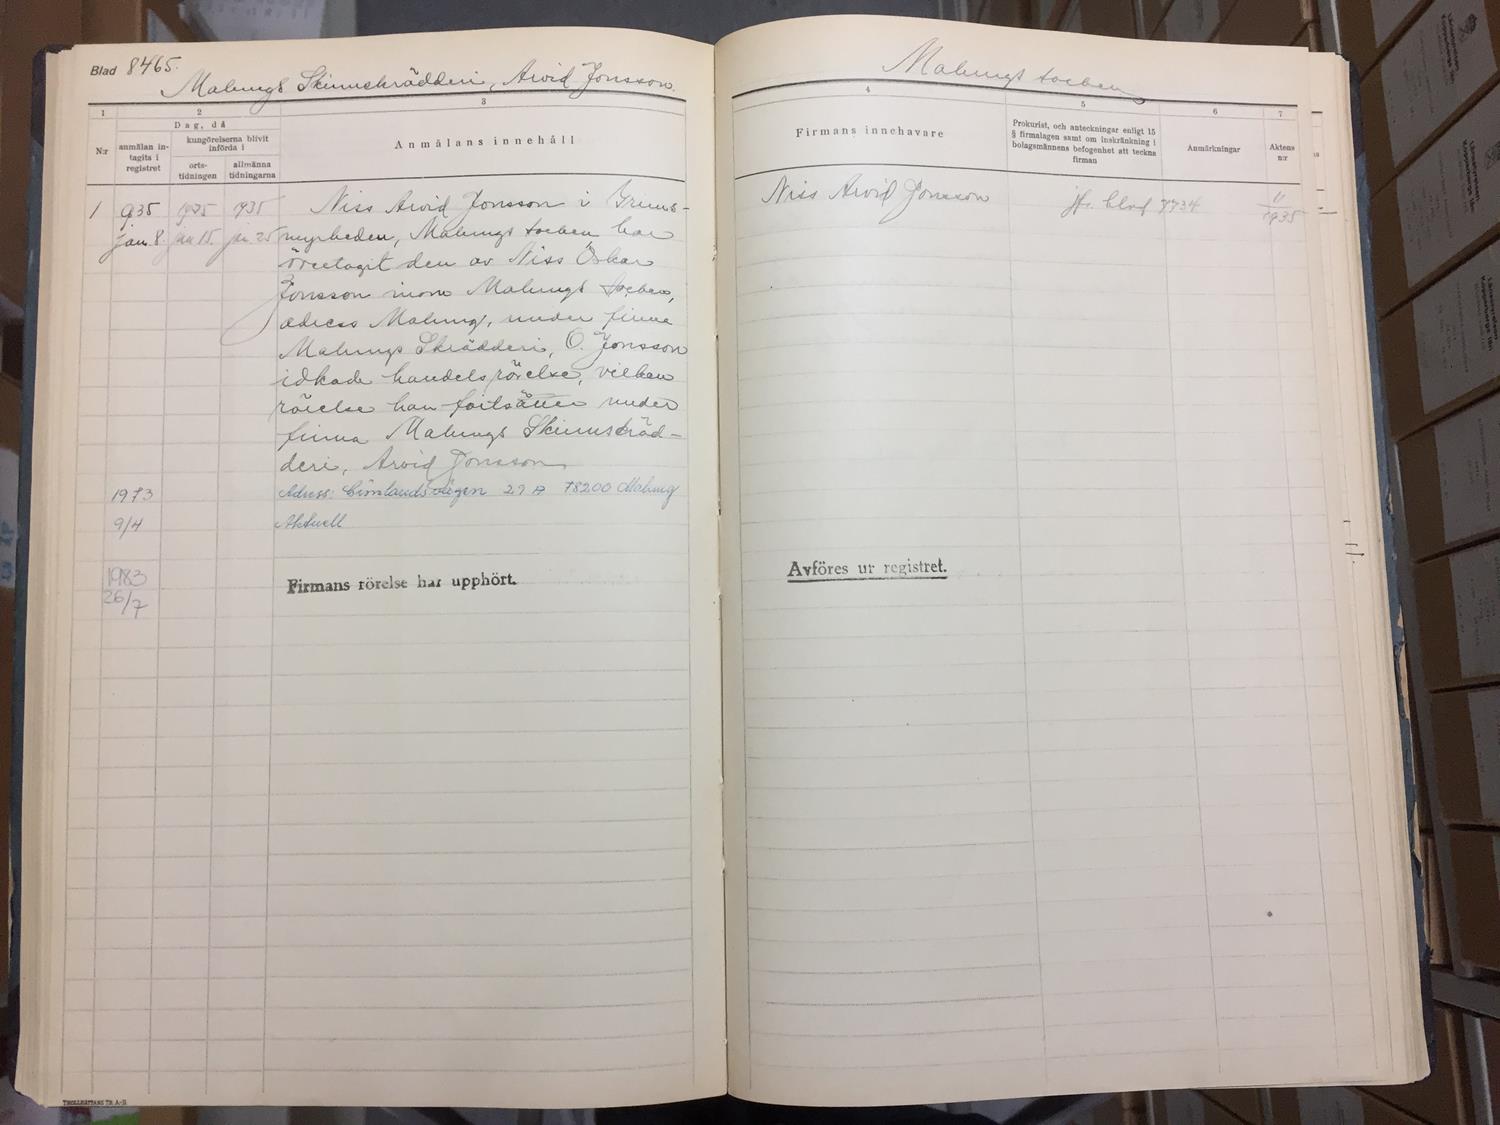 Blad 8465.
Malungs Skinnskrädderi, Arvid Jonsson.
1
2
3
N:r
Dag, då
anmälan in-
tagits i
registret
kungörelserna blivit
införda i
orts-
tidningen
allmänna
tidningarna
Anmälans innehåll
1
1935
jan. 8.
1935
jan 15.
1935
jan 25
Niss Arvid Jonsson i Grims-
myrheden, Malungs socken har
övertagit den av Niss Oskar
Jonsson inom Malungs socken,
adress Malung, under firma
Malungs Skrädderi, O. Jonsson
idkade handelsrörelse, vilken
rörelse han fortsätter under
firma Malungs Skinnskräd-
deri, Arvid Jonsson
1973
9/4
Adress: Grönlandsvägen 29 B 78200 Malung
Aktuell
1983
26/7
Firmans rörelse har upphört.
TROLLHÄTTANS TR. A.-B.
Malungs socken
4
5
6
7
Firmans innehavare
Prokurist, och anteckningar enligt 15
§ firmalagen samt om inskränkning i
bolagsmännens befogenhet att teckna
firman
Anmärkningar
Aktens
n:r
Niss Arvid Jonsson
jfr. blad 7734
11
1935
Avföres ur registret.